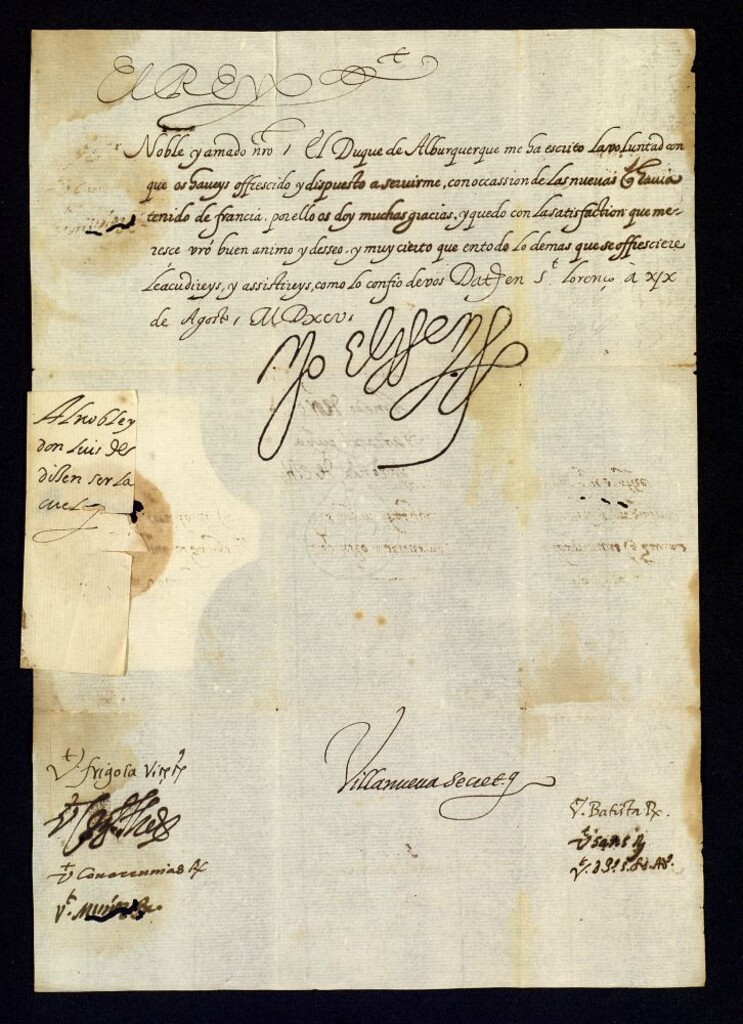 El Rey
Noble y amado nro, El Duque de Alburquerque me ha escrito la voluntad con
que os haueys offrescido y dispuesto a seruirme, con occassion de las nueuas q hauia
tenido de francia, por ello os doy muchas gracias, y quedo con la satisfaction que me-
resce vro buen animo y desseo, y muy cierto que en todo lo demas que se offresciere
le acudireys, y assistireys, como lo confio de vos Dat en St Lorenço à xix
de Agosto, MDxcv,
Yo el Rey
Al noble y
don Luis de
ser la
Villanueua Secretº
Vt frigola Vice
Vt. Batista Rx.
Vt Sans R
Vt Couarruuias Rx
Vt. Muñoz Rx